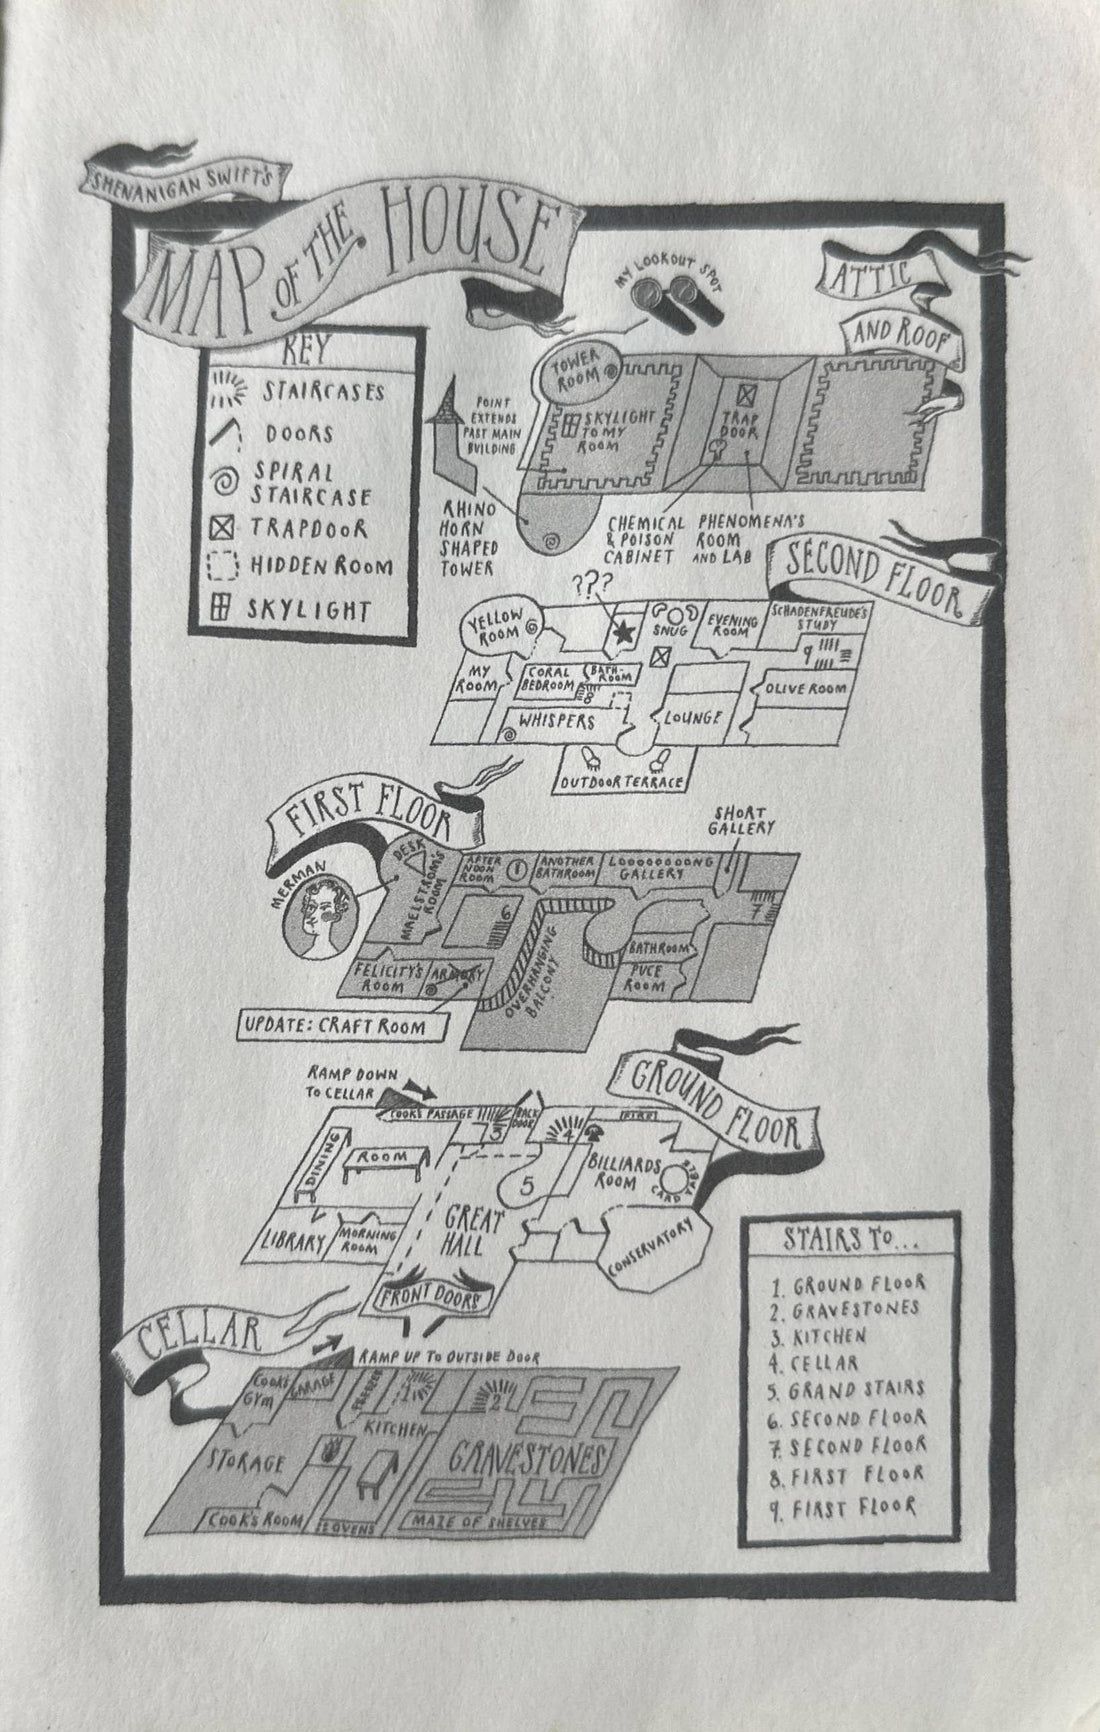 SHENANIGAN SWIFT'S
MAP OF THE HOUSE
KEY
STAIRCASES
DOORS
SPIRAL
STAIRCASE
TRAPDOOR
HIDDEN ROOM
SKYLIGHT
ATTIC
AND ROOF
MY LOOKOUT SPOT
TOWER
ROOM
POINT
EXTENDS
PAST MAIN
BUILDING
SKYLIGHT
TO MY
ROOM
TRAP
DOOR
RHINO
HORN
SHAPED
TOWER
CHEMICAL
& POISON
CABINET
PHENOMENA'S
ROOM
AND LAB
SECOND FLOOR
???
YELLOW
ROOM
SNUG
EVENING
ROOM
SCHADENFREUDE'S
STUDY
9
MY
ROOM
CORAL
BEDROOM
BATH-
ROOM
8
OLIVE ROOM
WHISPERS
LOUNGE
OUTDOOR TERRACE
FIRST FLOOR
SHORT
GALLERY
MERMAN
DESK
MAELSTROM'S
ROOM
AFTER
NOON
ROOM
ANOTHER
BATHROOM
LOOOOOOOONG
GALLERY
6
7
OVERHANGING
BALCONY
BATHROOM
PUCE
ROOM
FELICITY'S
ROOM
ARMORY
UPDATE: CRAFT ROOM
GROUND FLOOR
RAMP DOWN
TO CELLAR
COOK'S PASSAGE
3
BACK
DOOR
4
DINING
ROOM
5
BILLIARDS
ROOM
CARD TABLE
LIBRARY
MORNING
ROOM
GREAT
HALL
CONSERVATORY
FRONT DOORS
CELLAR
RAMP UP TO OUTSIDE DOOR
COOK'S
GYM
GARAGE
FREEZER
1
2
KITCHEN
STORAGE
GRAVESTONES
COOK'S ROOM
OVENS
MAZE OF SHELVES
STAIRS TO...
1. GROUND FLOOR
2. GRAVESTONES
3. KITCHEN
4. CELLAR
5. GRAND STAIRS
6. SECOND FLOOR
7. SECOND FLOOR
8. FIRST FLOOR
9. FIRST FLOOR